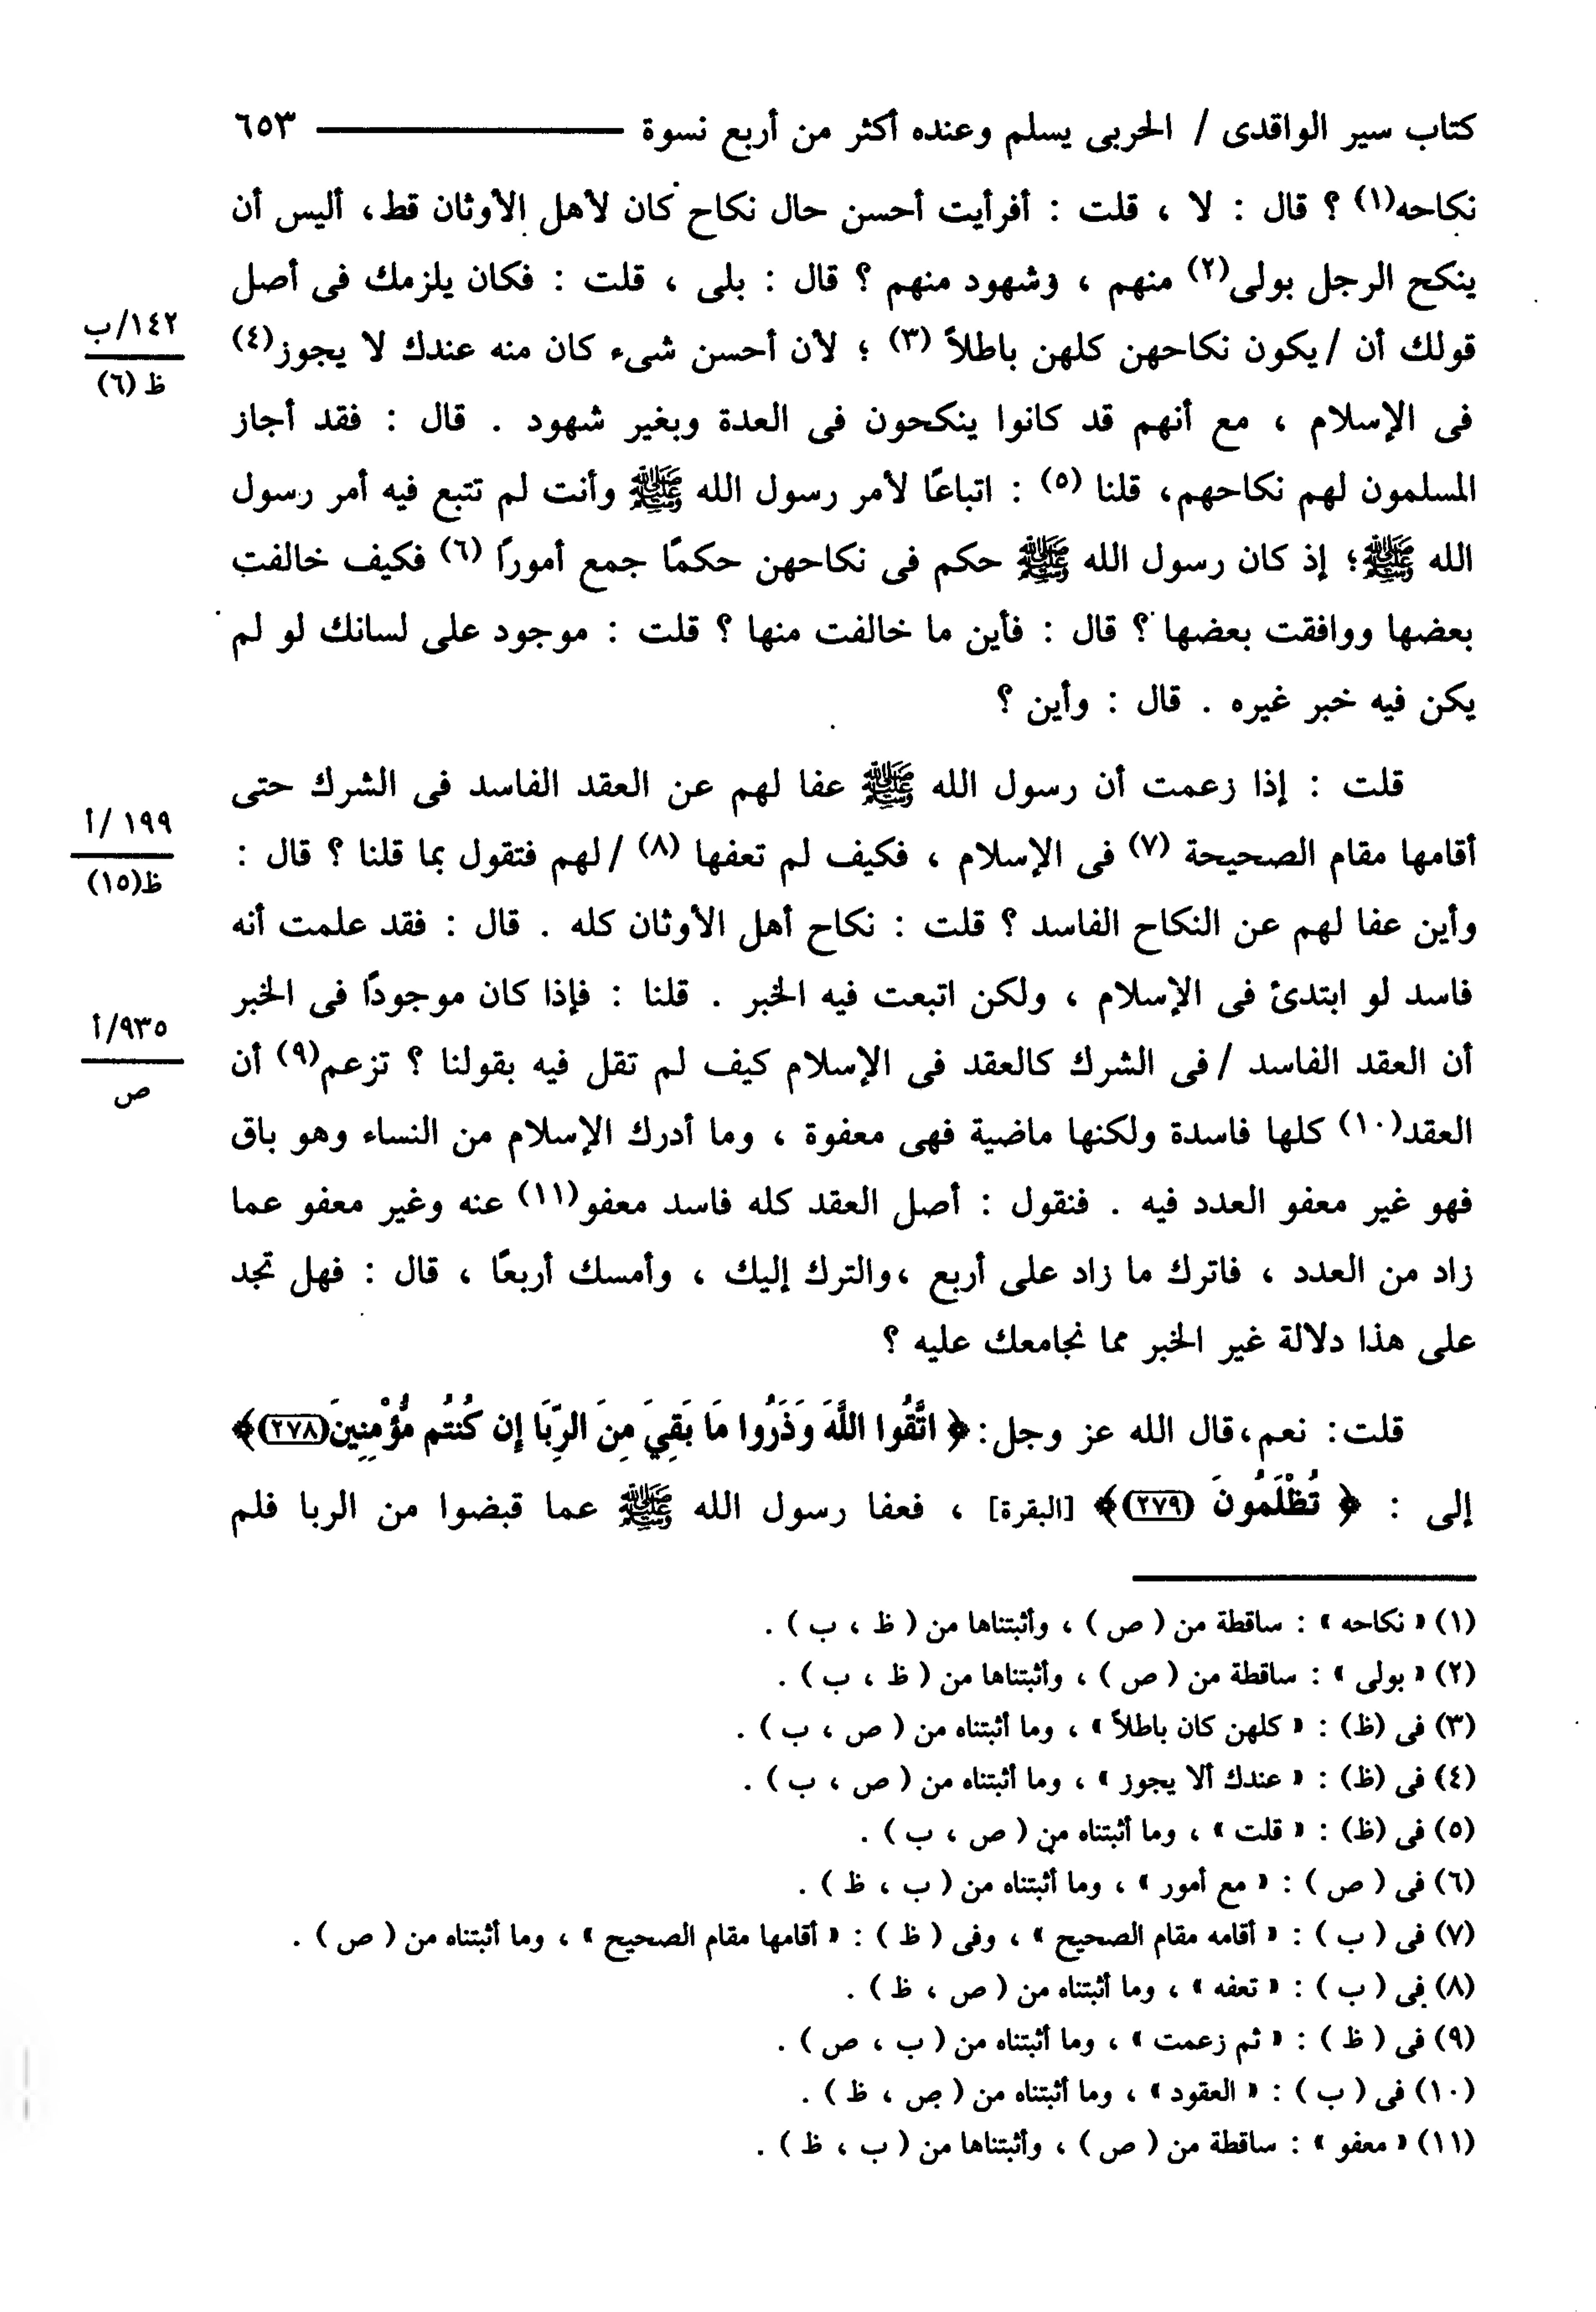 كتاب سير الواقدى / الحربى يسلم وعنده أكثر من أربع نسوة ــــــــــــــــ ٦٥٣
نكاحه(١) ؟ قال : لا ، قلت : أفرأيت أحسن حال نكاح كان لأهل الأوثان قط، أليس أن
ينكح الرجل بولى(٢) منهم ، وشهود منهم ؟ قال : بلى ، قلت : فكان يلزمك فى أصل
١٤٢/ب
ظ (٦)
قولك أن /يكون نكاحهن كلهن باطلاً (٣) ؛ لأن أحسن شىء كان منه عندك لا يجوز(٤)
فى الإسلام ، مع أنهم قد كانوا ينكحون فى العدة وبغير شهود . قال : فقد أجاز
المسلمون لهم نكاحهم، قلنا (٥) : اتباعًا لأمر رسول الله ﷺ وأنت لم تتبع فيه أمر رسول
الله ﷺ؛ إذ كان رسول الله ﷺ حكم فى نكاحهن حكمًا جمع أمورًا (٦) فكيف خالفت
بعضها ووافقت بعضها ؟ قال : فأين ما خالفت منها ؟ قلت : موجود على لسانك لو لم
يكن فيه خبر غيره . قال : وأين ؟
قلت : إذا زعمت أن رسول الله ﷺ عفا لهم عن العقد الفاسد فى الشرك حتى
١٩٩ /أ
ظ(١٥)
أقامها مقام الصحيحة (٧) فى الإسلام ، فكيف لم تعفها (٨) /لهم فتقول بما قلنا ؟ قال :
وأين عفا لهم عن النكاح الفاسد ؟ قلت : نكاح أهل الأوثان كله . قال : فقد علمت أنه
فاسد لو ابتدئ فى الإسلام ، ولكن اتبعت فيه الخبر . قلنا : فإذا كان موجودًا فى الخبر
٩٣٥/أ
ص
أن العقد الفاسد /فى الشرك كالعقد فى الإسلام كيف لم تقل فيه بقولنا ؟ تزعم(٩) أن
العقد(١٠) كلها فاسدة ولكنها ماضية فهى معفوة ، وما أدرك الإسلام من النساء وهو باق
فهو غير معفو العدد فيه . فنقول : أصل العقد كله فاسد معفو(١١) عنه وغير معفو عما
زاد من العدد ، فاترك ما زاد على أربع ،والترك إليك ، وأمسك أربعًا ، قال : فهل تجد
على هذا دلالة غير الخبر مما نجامعك عليه ؟
قلت: نعم،قال الله عز وجل:﴿ اتَّقُوا اللَّهَ وَذَرُوا مَا بَقِيَ مِنَ الرِّبَا إِن كُنتُم مُّؤْمِنِينَ(٢٧٨)﴾
إلى : ﴿ تُظْلَمُونَ (٢٧٩)﴾ [البقرة] ، فعفا رسول الله ﷺ عما قبضوا من الربا فلم
(١) « نكاحه » : ساقطة من ( ص ) ، وأثبتناها من ( ظ ، ب ) .
(٢) « بولى » : ساقطة من ( ص ) ، وأثبتناها من ( ظ ، ب ) .
(٣) فى (ظ) : « كلهن كان باطلاً » ، وما أثبتناه من ( ص ، ب ) .
(٤) فى (ظ) : « عندك ألا يجوز » ، وما أثبتناه من ( ص ، ب ) .
(٥) فى (ظ) : « قلت » ، وما أثبتناه من ( ص ، ب ) .
(٦) فى ( ص ) : « مع أمور » ، وما أثبتناه من ( ب ، ظ ) .
(٧) فى ( ب ) : « أقامه مقام الصحيح » ، وفى ( ظ ) : « أقامها مقام الصحيح » ، وما أثبتناه من ( ص ) .
(٨) فى ( ب ) : « تعفه » ، وما أثبتناه من ( ص ، ظ ) .
(٩) فى ( ظ ) : « ثم زعمت » ، وما أثبتناه من ( ب ، ص ) .
(١٠) فى ( ب ) : « العقود » ، وما أثبتناه من ( ص ، ظ ) .
(١١) « معفو » : ساقطة من ( ص ) ، وأثبتناها من ( ب ، ظ ) .